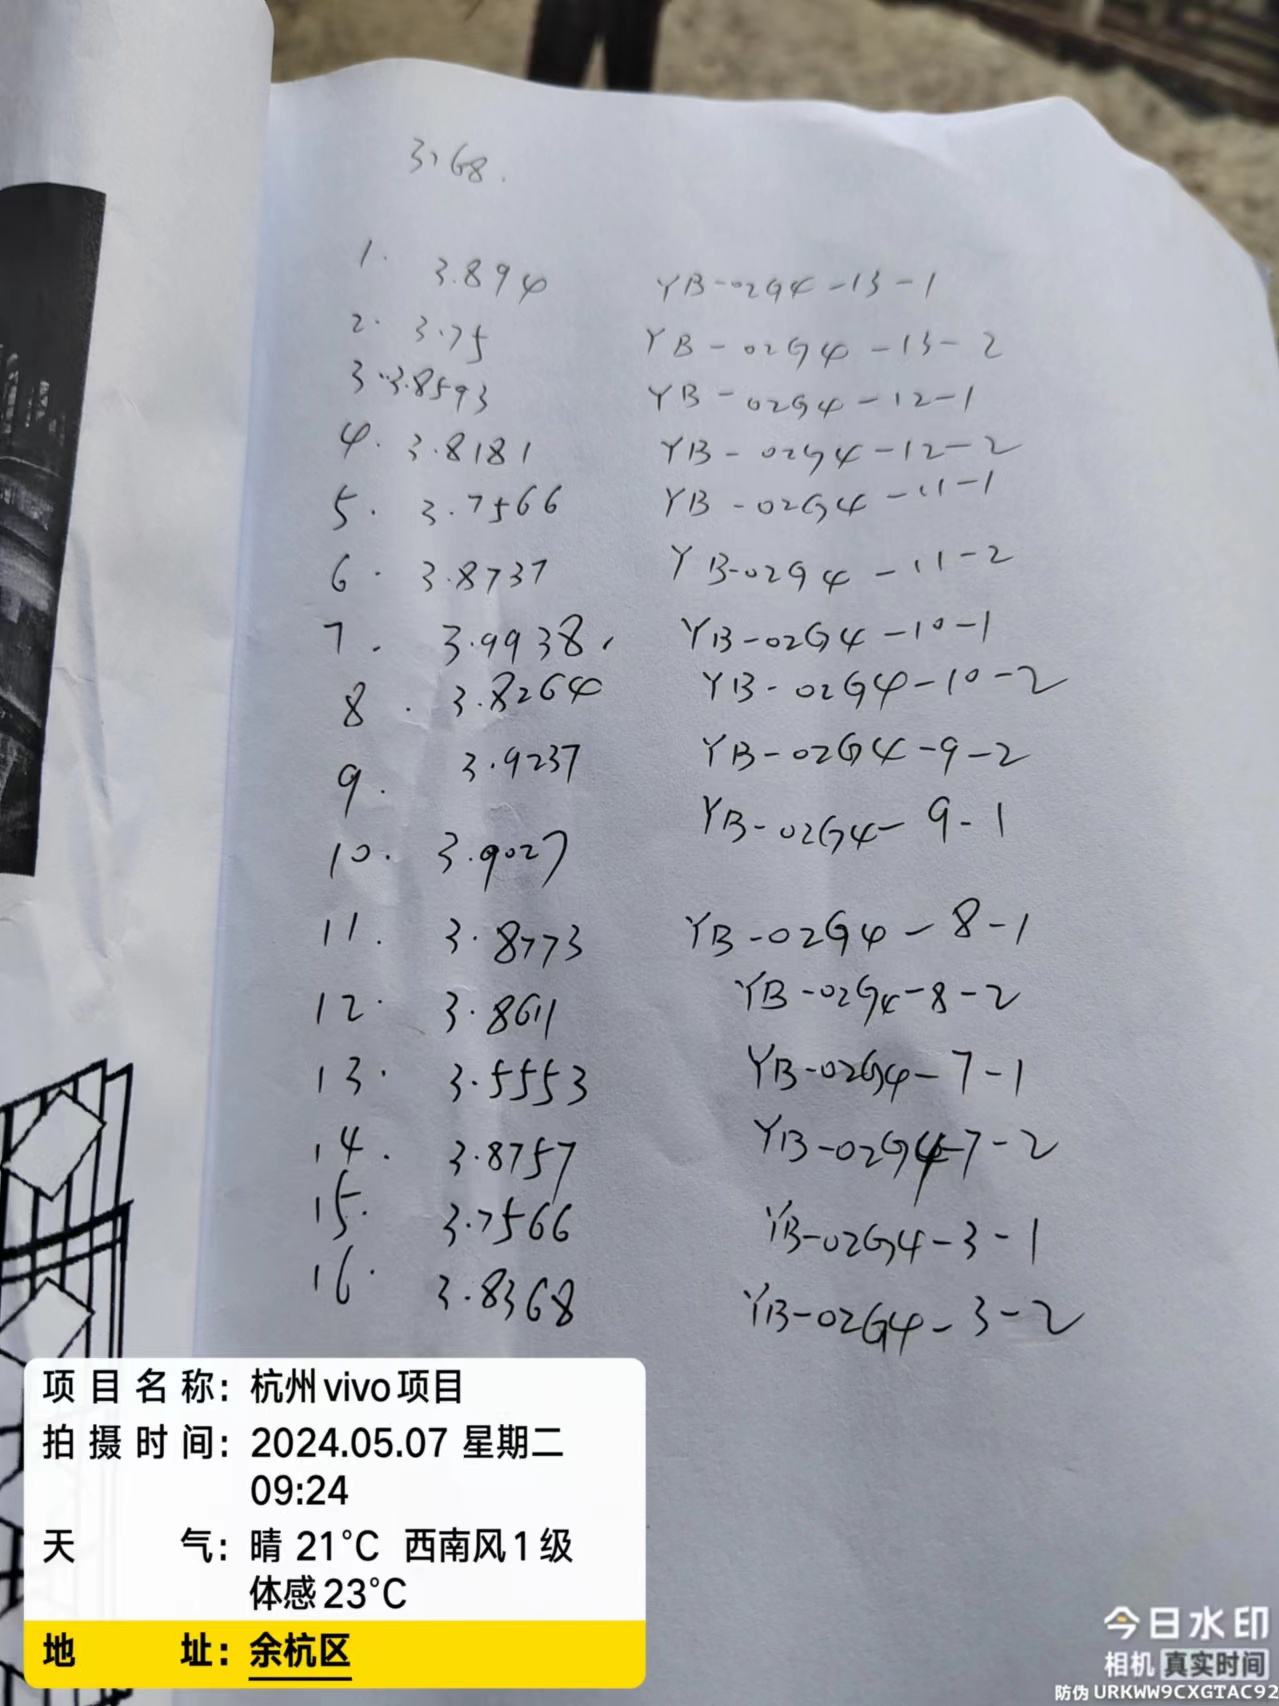 3.68.
1. 3.894 YB-02G4-13-1
2. 3.75 YB-02G4-13-2
3. 3.8593 YB-02G4-12-1
4. 3.8181 YB-02G4-12-2
5. 3.7566 YB-02G4-11-1
6. 3.8737 YB-02G4-11-2
7. 3.9938. YB-02G4-10-1
8. 3.8264 YB-02G4-10-2
9. 3.9237 YB-02G4-9-2
10. 3.9027 YB-02G4-9-1
11. 3.8773 YB-02G4-8-1
12. 3.8611 YB-02G4-8-2
13. 3.5553 YB-02G4-7-1
14. 3.8757 YB-02G4-7-2
15. 3.7566 YB-02G4-3-1
16. 3.8368 YB-02G4-3-2
项目名称：杭州vivo项目
拍摄时间：2024.05.07 星期二
09:24
天气：晴 21℃ 西南风1级
体感23℃
地址：余杭区
今日水印
相机 真实时间
防伪 URKWW9CXGTAC92